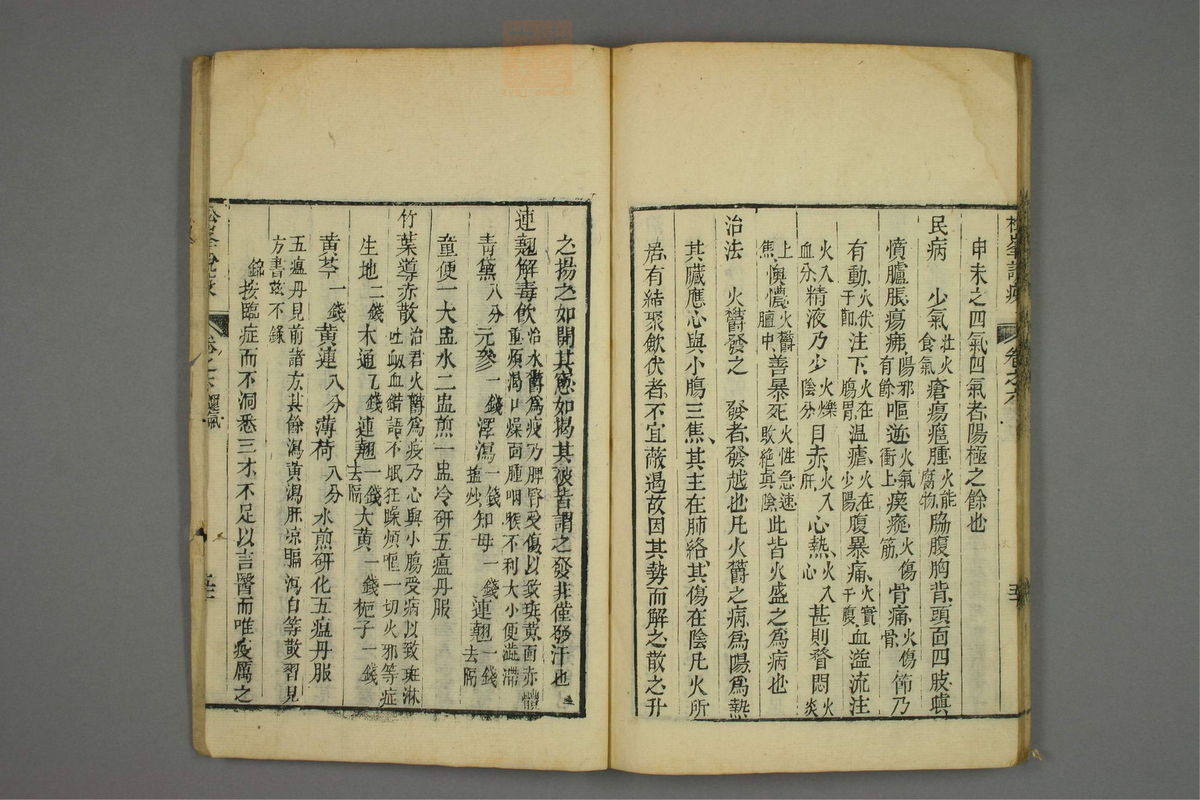 申未之四氣四氣者陽極之餘也
民病　少氣壯火食氣瘡瘍癰腫火能腐物脇腹胸背頭面四肢䐜
憤臚脹瘍痱陽邪有餘嘔逆火氣衝上瘈瘲火傷筋骨痛火傷骨節乃
有動火伏于節注下火在腸胃温瘧火在少陽腹暴痛火實于腹血溢流注
火入血分精液乃少火爍陰分目赤火入肝心熱火入心甚則瞀悶火炎
上焦懊憹火鬱膻中善暴死火性急速敗絶真陰此皆火盛之爲病也
治法　火鬱發之　發者發越也凡火鬱之病爲陽爲熱
其臟應心與小腸三焦其主在肺絡其傷在陰凡火所
居有結聚歛伏者不宜蔽遏故因其勢而解之散之升
之揚之如開其窻如揭其被皆謂之發非僅發汗也
連翹解毒飲治水鬱爲疫乃脾腎受傷以致斑黄面赤體重煩渴口燥面腫咽喉不利大小便澁滯
青黛八分元參一錢澤瀉一錢鹽炒知母一錢連翹一錢去隔
童便一大盅水二盅煎一盅冷研五瘟丹服
竹葉導赤散治君火鬱爲疫乃心與小腸受病以致斑淋吐血血錯語不眠狂躁煩嘔一切火邪等症
生地二錢木通一錢連翹一錢去隔大黄一錢梔子一錢
黄芩一錢黄連八分薄荷八分水煎研化五瘟丹服
五瘟丹見前諸方其餘瀉黄瀉肝凉膈瀉白等散習見
方書兹不錄
錦按臨症而不洞悉三才不足以言醫而唯疫厲之
卷之六
卷之六運氣